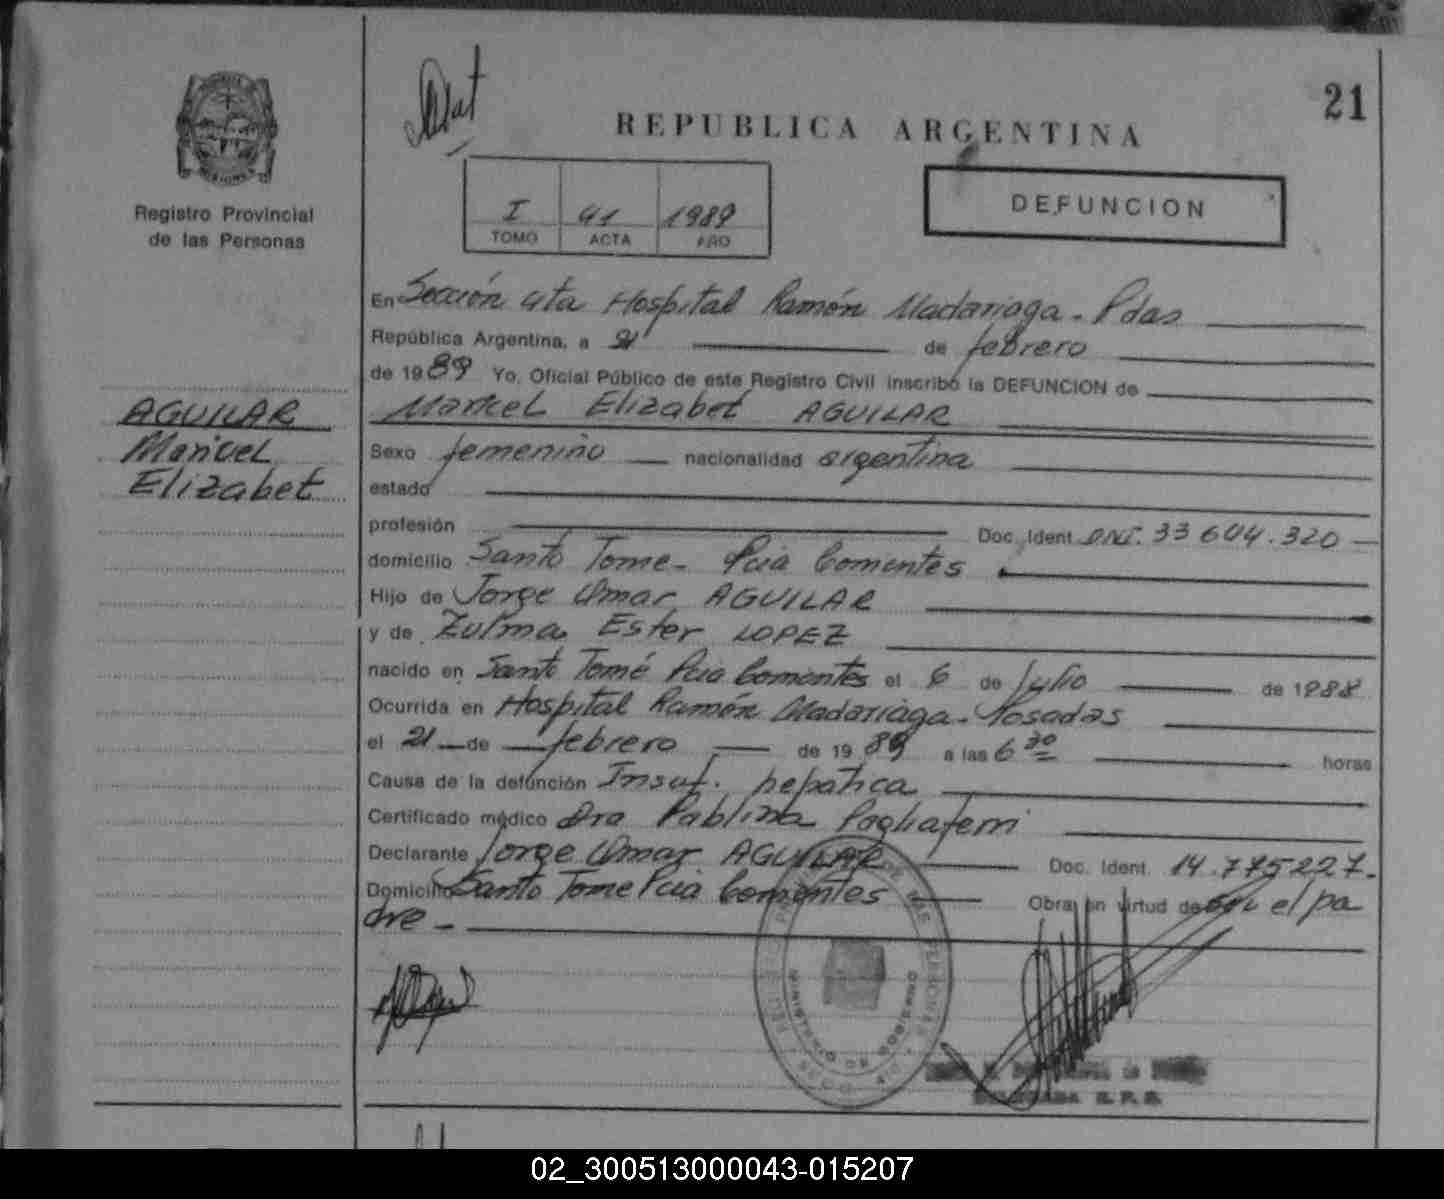 21
REPUBLICA ARGENTINA
MISIONES
Registro Provincial
de las Personas
DEFUNCION
I 41 1989
TOMO ACTA AÑO
En Sección 4ta Hospital Ramón Madariaga - Pdas
República Argentina, a 21 de febrero
de 1989 Yo, Oficial Público de este Registro Civil inscribo la DEFUNCION de
Elizabet AGUILAR
AGUILAR
Elizabet
Sexo femenino nacionalidad argentina
estado
profesión Doc. Ident. DNI. 33 604.320
domicilio Santo Tome - Pcia Corrientes
Hijo de Jorge Omar AGUILAR
y de Zulma Ester LOPEZ
nacido en Santo Tomé Pcia Corrientes el 6 de Julio de 1988
Ocurrida en Hospital Ramón Madariaga - Posadas
el 21 de febrero de 1989 a las 6 30 horas
Causa de la defunción Insuf. hepatica
Certificado médico Dra Pablina Pagliaferri
Declarante Jorge Omar AGUILAR Doc. Ident. 14.775227.
Domicilio Santo Tome Pcia Corrientes Obra en virtud de ser el pa
dre -
DE LAS PERSONAS
MINISTERIO DE GOBIERNO
02_300513000043-015207